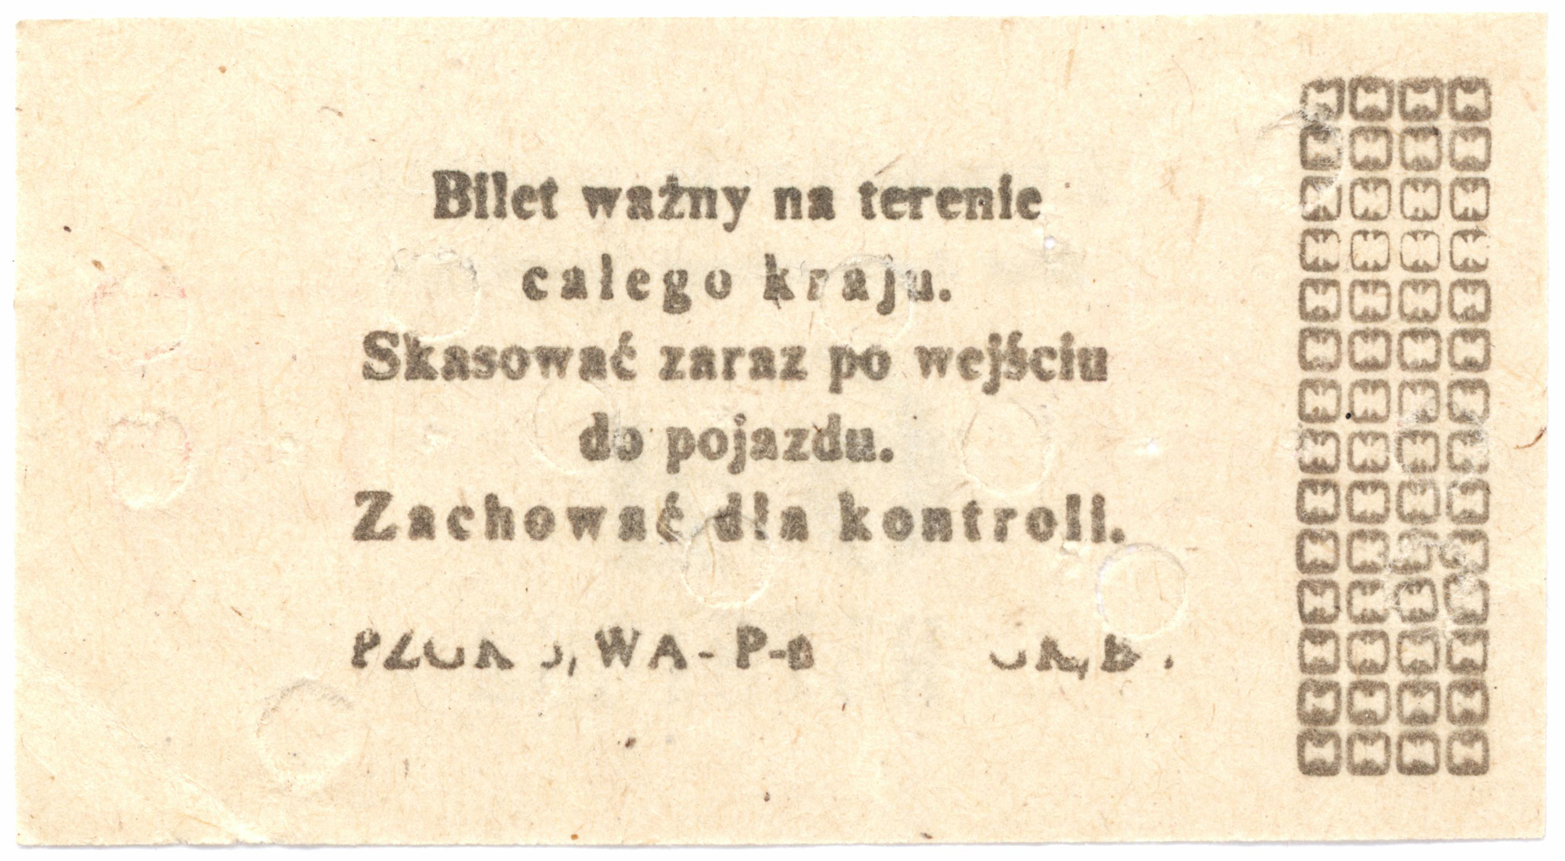 Bilet ważny na terenie
całego kraju.
Skasować zaraz po wejściu
do pojazdu.
Zachować dla kontroli.
WA-P-